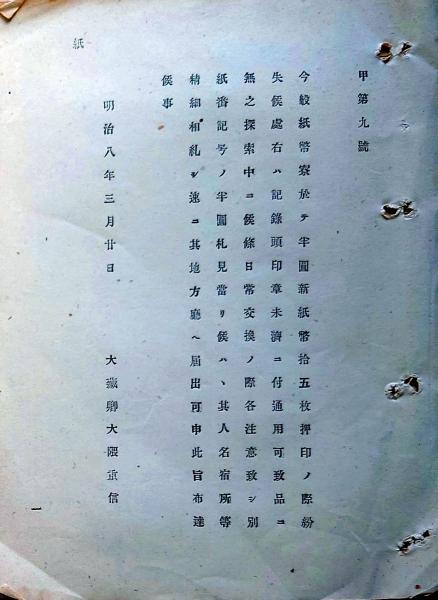 甲第九號
今般紙幣寮於テ半圓新紙幣拾五枚押印ノ際紛
失候處右ハ記錄頭印章未濟ニ付通用可致品ニ
無之探索中ニ候條日常交換ノ際各注意致シ別
紙番記号ノ半圓札見當リ候ハヽ其人名宿所等
精細相糺シ速ニ其地方廳ヘ屆出可申此旨布達
候事
明治八年三月廿日
大藏卿大隈重信
紙
一